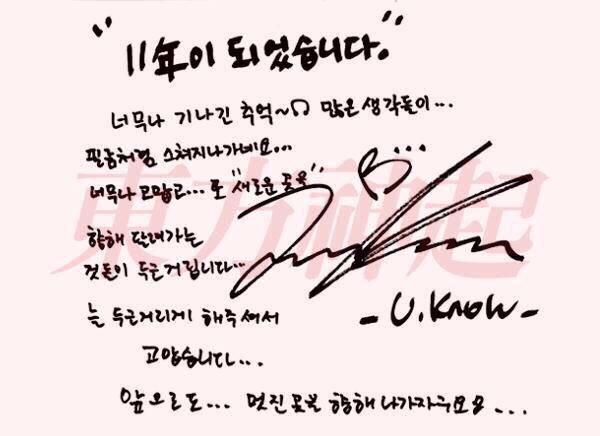 "11年이 되었습니다."
너무나 기나긴 추억~ 많은 생각들이...
필름처럼 스쳐지나가네요...
너무나 고맙고... 또 "새로운 꿈을"
향해 달려가는
것들이 두근거립니다...
늘 두근거리게 해주셔서
고맙습니다...
앞으로도... 멋진 꿈을 향해 나가자구요...
- U.Know -
東方神起